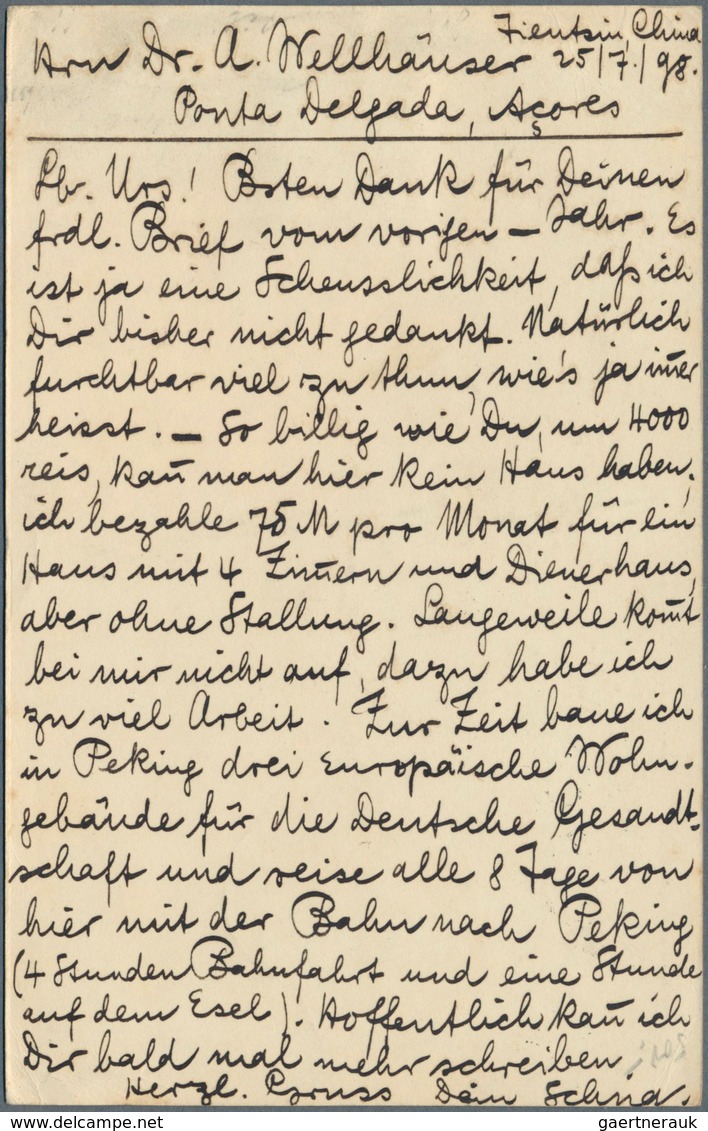 Tientsin, China
Hrn Dr. A. Wellhäuser 25/7./98.
Ponta Delgada, Açores
Lb. Urs! Bsten Dank für Deinen
frdl. Brief vom vorigen — Jahr. Es
ist ja eine Scheusslichkeit, daß ich
Dir bisher nicht gedankt. Natürlich
furchtbar viel zu thun, wie's ja im̅er
heisst. — So billig wie Du, um 4000
reis, kan̅ man hier kein Haus haben,
ich bezahle 75 M pro Monat für ein
Haus mit 4 Zim̅ern und Dienerhaus,
aber ohne Stallung. Langeweile kom̅t
bei mir nicht auf, dazu habe ich
zu viel Arbeit. Zur Zeit baue ich
in Peking drei Europäische Wohn-
gebäude für die Deutsche Gesandt-
schaft und reise alle 8 Tage von
hier mit der Bahn nach Peking
(4 Stunden Bahnfahrt und eine Stunde
auf dem Esel). Hoffentlich kan̅ ich
Dir bald mal mehr schreiben.
Herzl. Gruss Dein
gaertnerauk